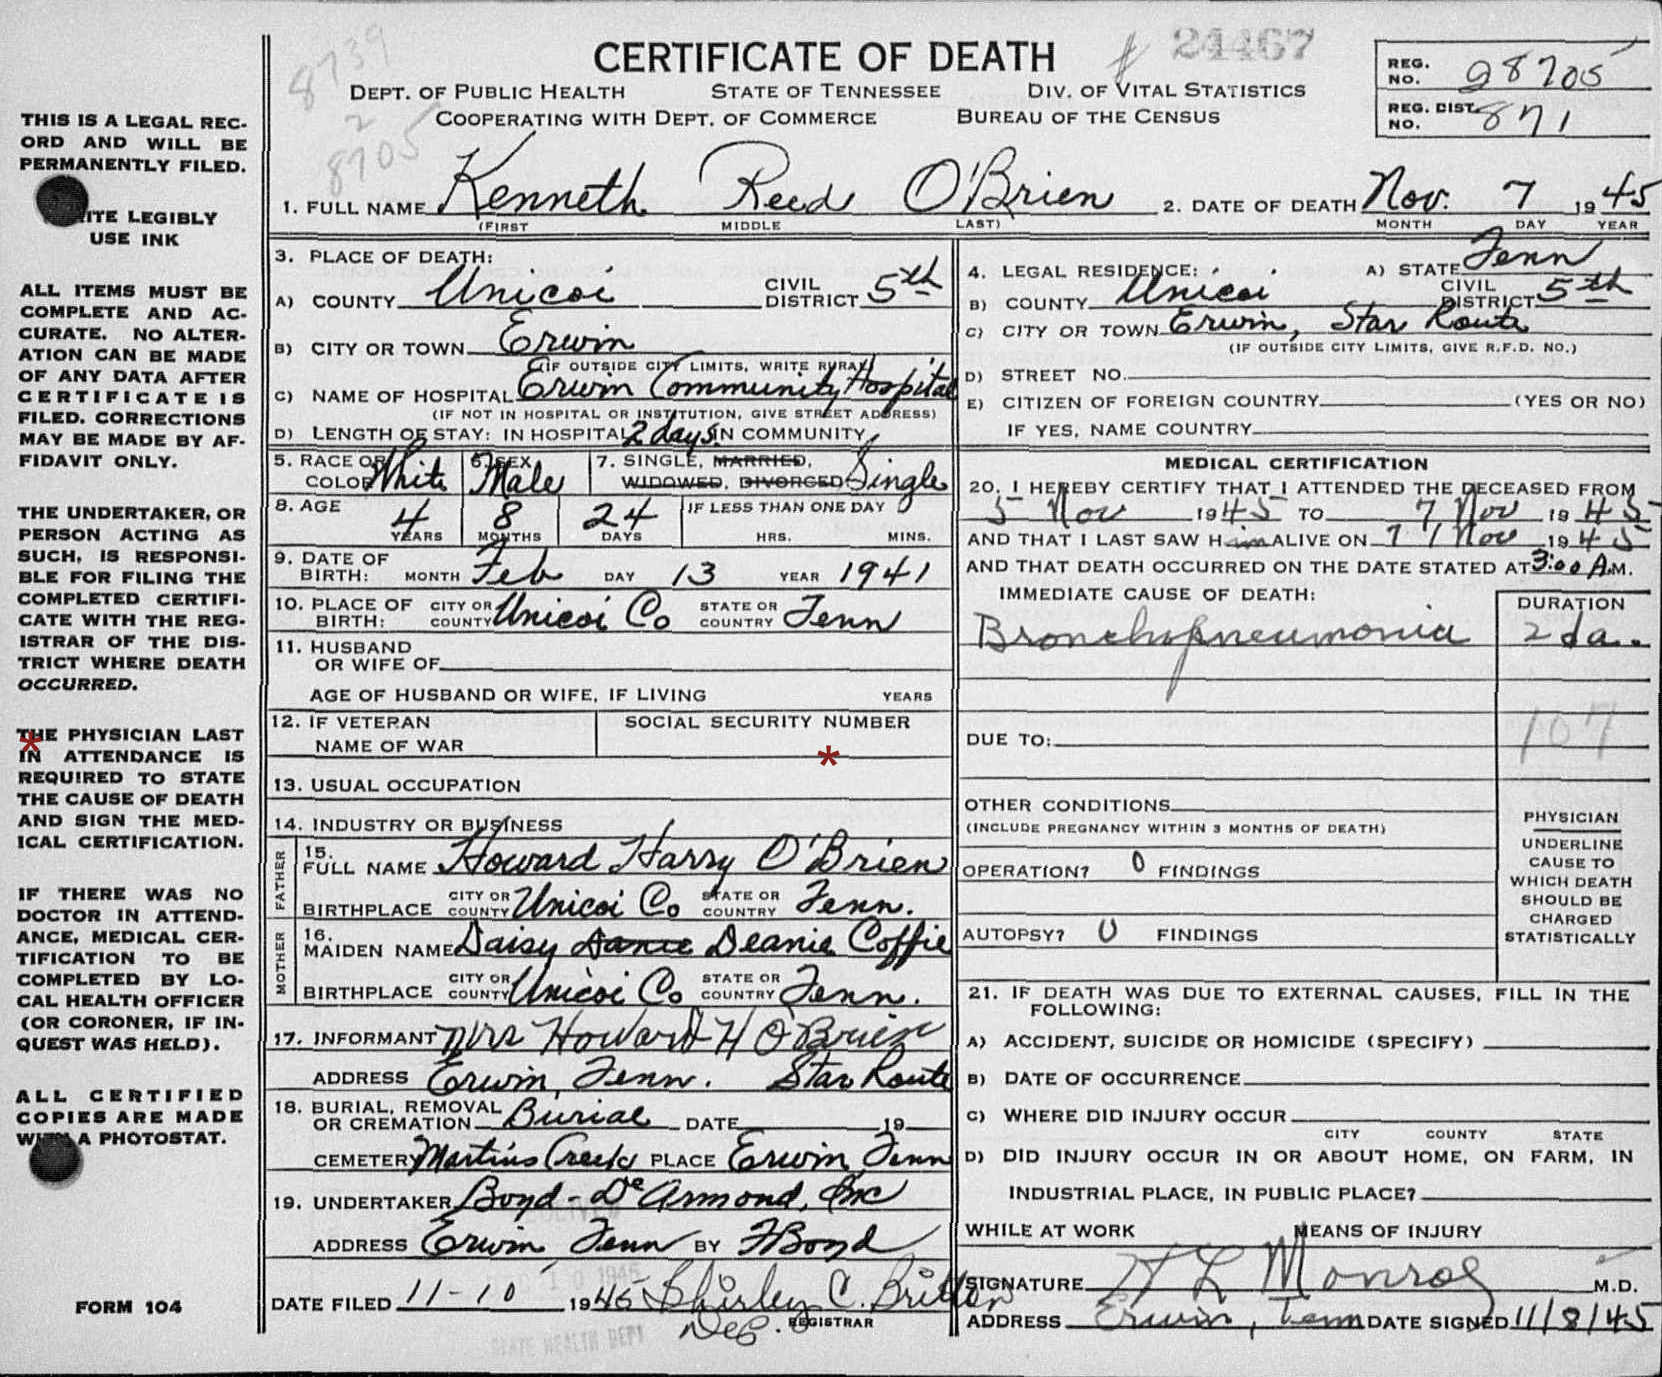 8739
2
8705
CERTIFICATE OF DEATH
# 24467
DEPT. OF PUBLIC HEALTH STATE OF TENNESSEE DIV. OF VITAL STATISTICS
COOPERATING WITH DEPT. OF COMMERCE BUREAU OF THE CENSUS
REG. NO. 28705
REG. DIST. NO. 871
THIS IS A LEGAL REC-
ORD AND WILL BE
PERMANENTLY FILED.
ITE LEGIBLY
USE INK
ALL ITEMS MUST BE
COMPLETE AND AC-
CURATE. NO ALTER-
ATION CAN BE MADE
OF ANY DATA AFTER
CERTIFICATE IS
FILED. CORRECTIONS
MAY BE MADE BY AF-
FIDAVIT ONLY.
THE UNDERTAKER, OR
PERSON ACTING AS
SUCH, IS RESPONSI-
BLE FOR FILING THE
COMPLETED CERTIFI-
CATE WITH THE REG-
ISTRAR OF THE DIS-
TRICT WHERE DEATH
OCCURRED.
* THE PHYSICIAN LAST
IN ATTENDANCE IS
REQUIRED TO STATE
THE CAUSE OF DEATH
AND SIGN THE MED-
ICAL CERTIFICATION.
IF THERE WAS NO
DOCTOR IN ATTEND-
ANCE, MEDICAL CER-
TIFICATION TO BE
COMPLETED BY LO-
CAL HEALTH OFFICER
(OR CORONER, IF IN-
QUEST WAS HELD).
ALL CERTIFIED
COPIES ARE MADE
WITH A PHOTOSTAT.
FORM 104
1. FULL NAME Kenneth Reed O'Brien 2. DATE OF DEATH Nov. 7 1945
(FIRST MIDDLE LAST) MONTH DAY YEAR
3. PLACE OF DEATH:
A) COUNTY Unicoi CIVIL DISTRICT 5th
B) CITY OR TOWN Erwin
(IF OUTSIDE CITY LIMITS, WRITE RURAL)
C) NAME OF HOSPITAL Erwin Community Hospital
(IF NOT IN HOSPITAL OR INSTITUTION, GIVE STREET ADDRESS)
D) LENGTH OF STAY: IN HOSPITAL 2 days IN COMMUNITY
5. RACE OR COLOR White 6. SEX Male 7. SINGLE, MARRIED, WIDOWED, DIVORCED Single
8. AGE 4 8 24 IF LESS THAN ONE DAY
YEARS MONTHS DAYS HRS. MINS.
9. DATE OF BIRTH: MONTH Feb DAY 13 YEAR 1941
10. PLACE OF BIRTH: CITY OR COUNTY Unicoi Co STATE OR COUNTRY Tenn
11. HUSBAND OR WIFE OF
AGE OF HUSBAND OR WIFE, IF LIVING YEARS
12. IF VETERAN NAME OF WAR SOCIAL SECURITY NUMBER
*
13. USUAL OCCUPATION
14. INDUSTRY OR BUSINESS
FATHER
15. FULL NAME Howard Harry O'Brien
BIRTHPLACE CITY OR COUNTY Unicoi Co STATE OR COUNTRY Tenn.
MOTHER
16. MAIDEN NAME Daisy Deanie Coffie
BIRTHPLACE CITY OR COUNTY Unicoi Co STATE OR COUNTRY Tenn.
17. INFORMANT Mrs Howard H O'Brien
ADDRESS Erwin, Tenn. Star Route
18. BURIAL, REMOVAL OR CREMATION Burial DATE 19
CEMETERY Martins Creek PLACE Erwin Tenn
19. UNDERTAKER Boyd-DeArmond, Inc
ADDRESS Erwin Tenn BY F Boyd
DATE FILED 11-10 1945 Shirley C. Britton
Dep. REGISTRAR
STATE HEALTH DEPT
4. LEGAL RESIDENCE: A) STATE Tenn
B) COUNTY Unicoi CIVIL DISTRICT 5th
C) CITY OR TOWN Erwin, Star Route
(IF OUTSIDE CITY LIMITS, GIVE R.F.D. NO.)
D) STREET NO.
E) CITIZEN OF FOREIGN COUNTRY (YES OR NO)
IF YES, NAME COUNTRY
MEDICAL CERTIFICATION
20. I HEREBY CERTIFY THAT I ATTENDED THE DECEASED FROM
5 Nov 1945 TO 7 Nov 1945
AND THAT I LAST SAW Him ALIVE ON 7 Nov 1945
AND THAT DEATH OCCURRED ON THE DATE STATED AT 3:00 A.M.
IMMEDIATE CAUSE OF DEATH: DURATION
Bronchopneumonia 2 da.
107
DUE TO:
OTHER CONDITIONS
(INCLUDE PREGNANCY WITHIN 3 MONTHS OF DEATH)
OPERATION? 0 FINDINGS
AUTOPSY? 0 FINDINGS
PHYSICIAN
UNDERLINE
CAUSE TO
WHICH DEATH
SHOULD BE
CHARGED
STATISTICALLY
21. IF DEATH WAS DUE TO EXTERNAL CAUSES, FILL IN THE
FOLLOWING:
A) ACCIDENT, SUICIDE OR HOMICIDE (SPECIFY)
B) DATE OF OCCURRENCE
C) WHERE DID INJURY OCCUR
CITY COUNTY STATE
D) DID INJURY OCCUR IN OR ABOUT HOME, ON FARM, IN
INDUSTRIAL PLACE, IN PUBLIC PLACE?
WHILE AT WORK MEANS OF INJURY
SIGNATURE H L Monroe M.D.
ADDRESS Erwin, Tenn DATE SIGNED 11/8/45